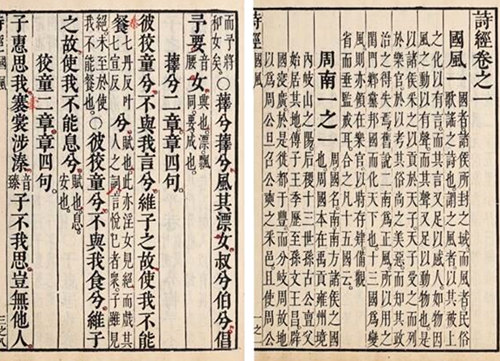 詩經卷之一
國風一
國者諸侯所封之域而風者民俗
歌謠之詩也謂之風者以其被上
之化以有言而其言又足以感人如物因
風之動以有聲而其聲又足以動物也是
以諸侯采之以貢於天子天子受之而列
於樂官於以考其俗尚之美惡而知其政
治之得失焉舊說二南為正風所以用之
閨門鄉黨邦國而化天下也十三國為變
風則亦領在樂官以時存肄備觀
省而垂監戒耳合之凡十五國云
周南一之一
周國名南南方諸侯之國
也周國本在禹貢雍州境
內岐山之陽后稷十三世孫古公亶父
始居其地傳子王季歷至孫文王昌辟
國寖廣於是徙都于豐而分岐周故地
以為周公旦召公奭之采邑且使周公
而予將和女矣。○蘀兮蘀兮風其漂女叔兮伯兮倡
予要音腰女興也漂飄同要成也
蘀兮二章章四句
彼狡童兮不與我言兮維子之故使我不能
餐七丹反叶七宣反兮賦也此亦淫女見絕而戲其人之詞言悅己者眾子雖見
絕未至於使我不能餐也○彼狡童兮不與我食兮維子
之故使我不能息兮賦也息安也
狡童二章章四句
子惠思我褰裳涉溱音臻子不我思豈無他人
詩經 國風